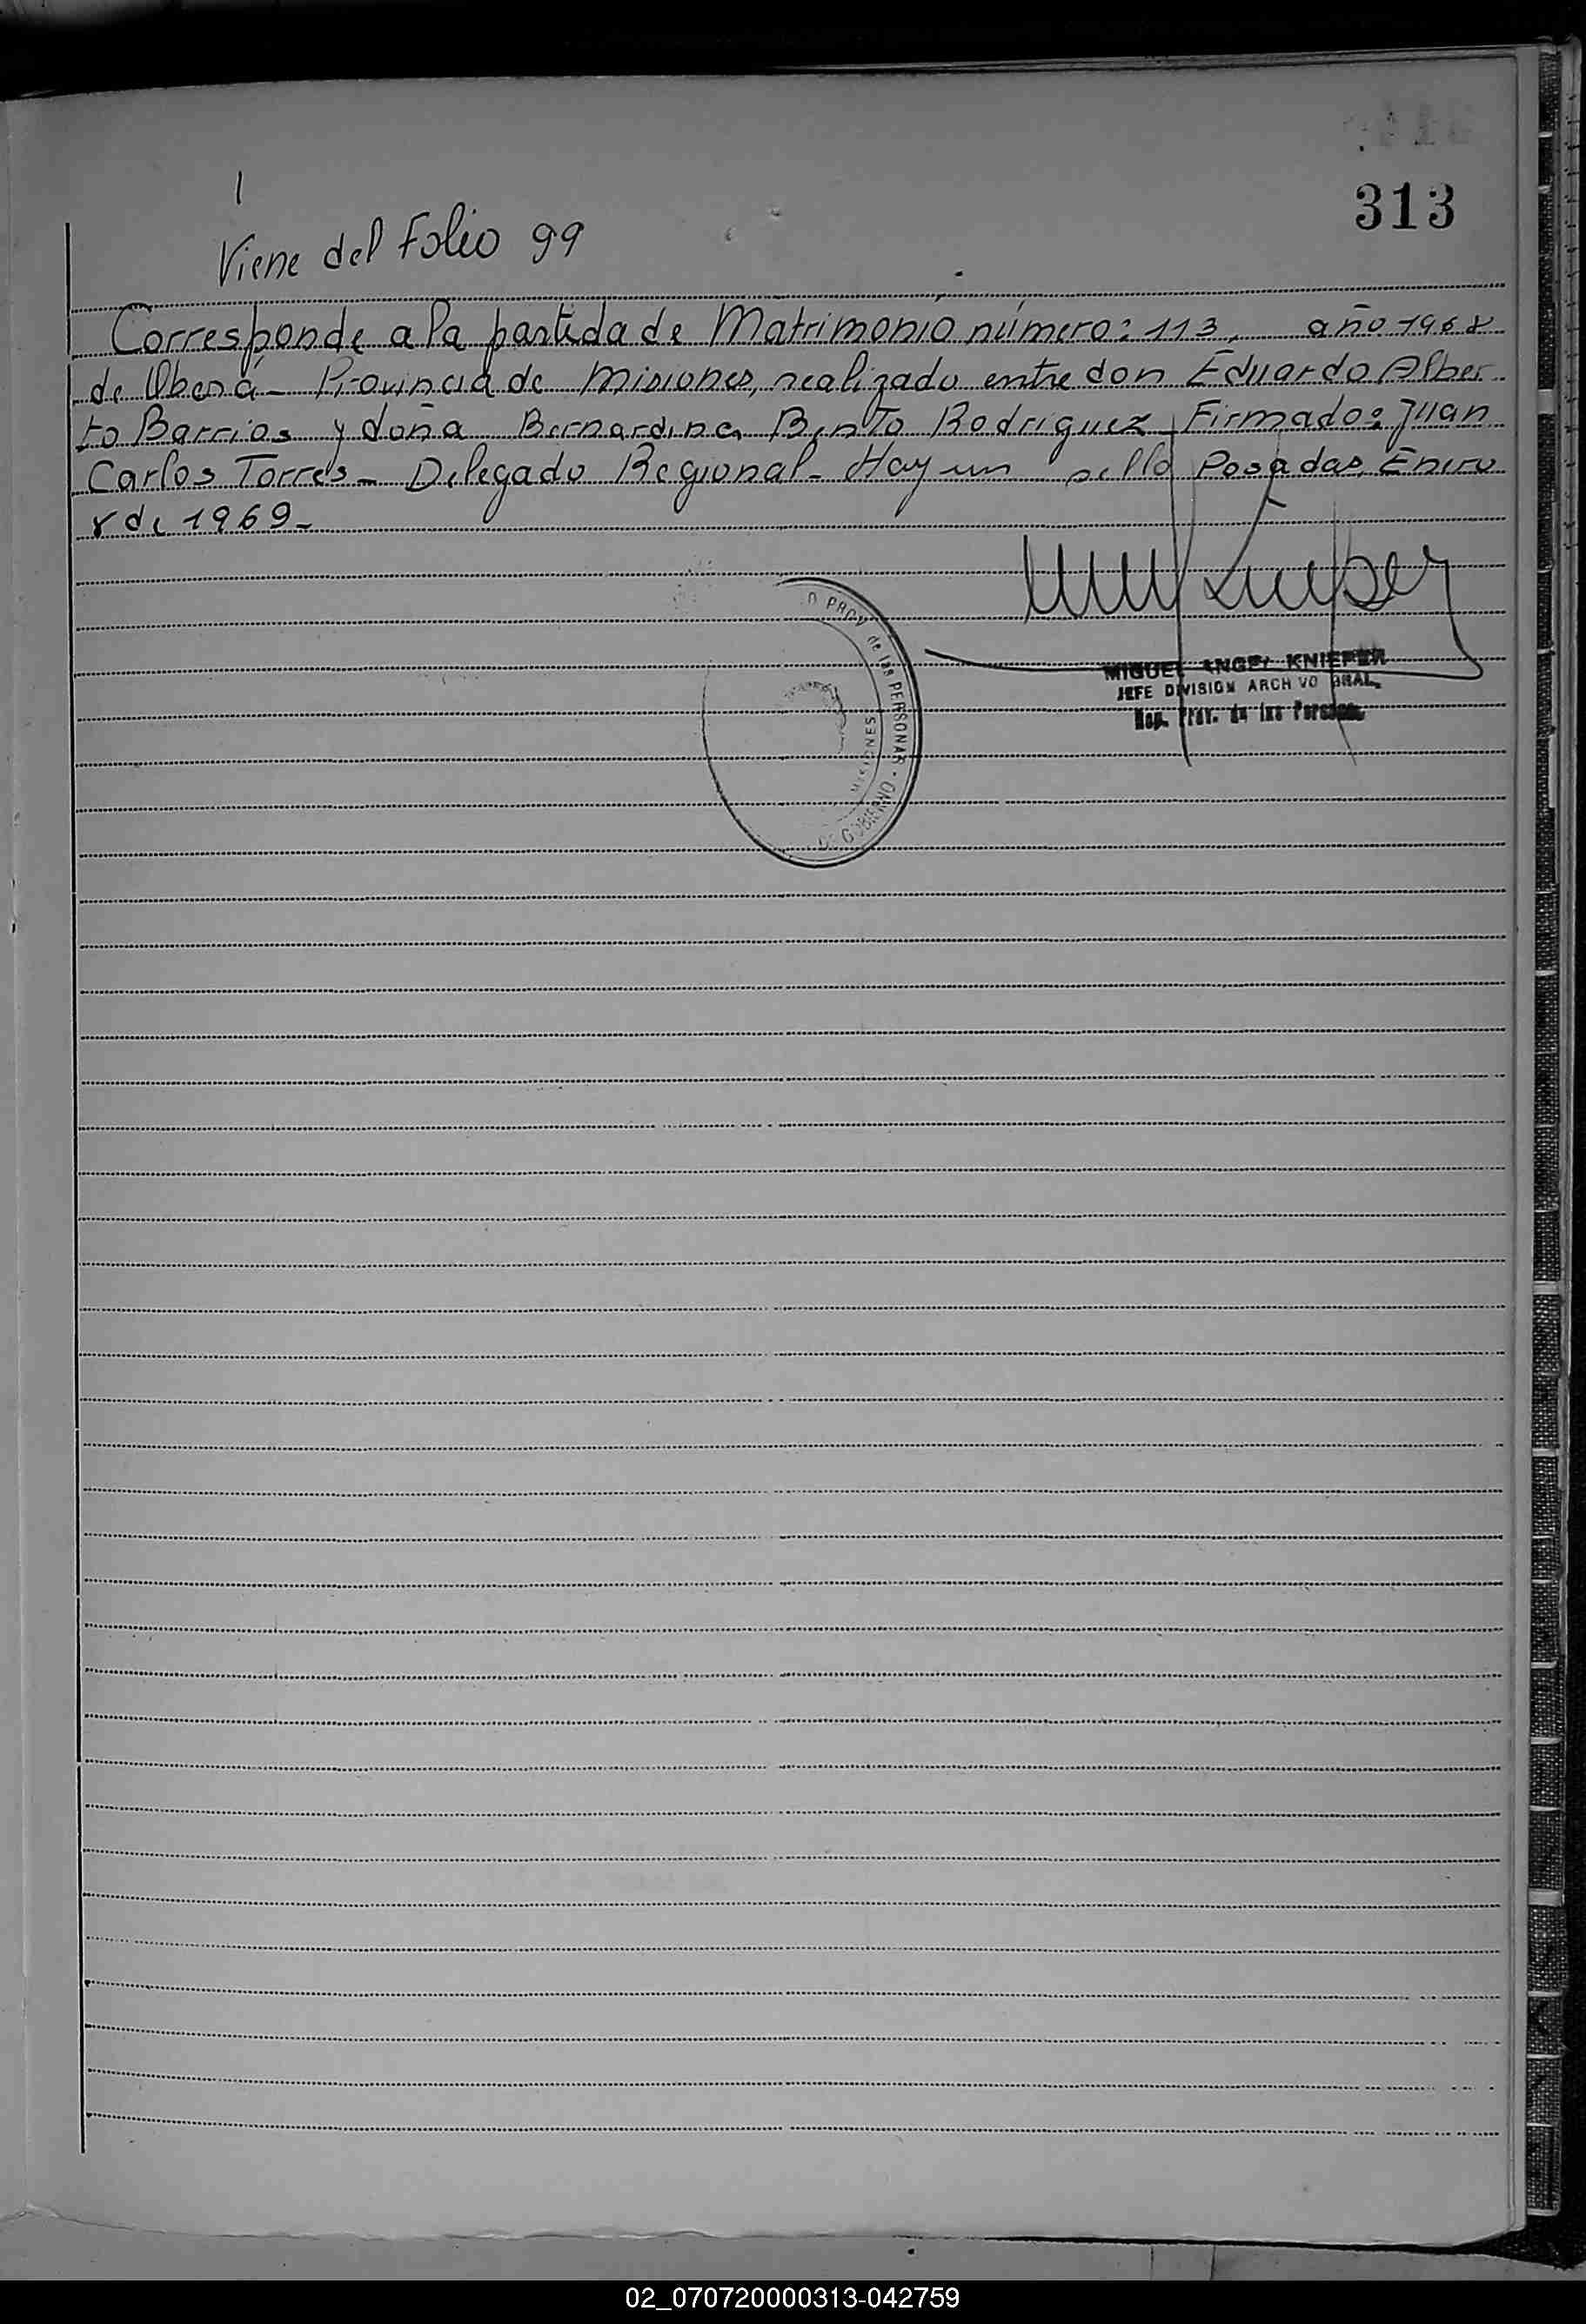 313
Viene del Folio 99
Corresponde a la partida de Matrimonio número: 113, año 1968
de Oberá - Provincia de Misiones, realizado entre don Eduardo Alber
to Barrios y doña Bernardina Bento Rodriguez Firmado: Juan
Carlos Torres - Delegado Regional - Hay un sello Posadas, Enero
8 de 1969 -
MIGUEL ANGEL KNIEPER
JEFE DIVISION ARCHIVO GRAL.
Prov. de las
PROV de las PERSONAS · DE GOBIERNO
MISIONES
02_070720000313-042759